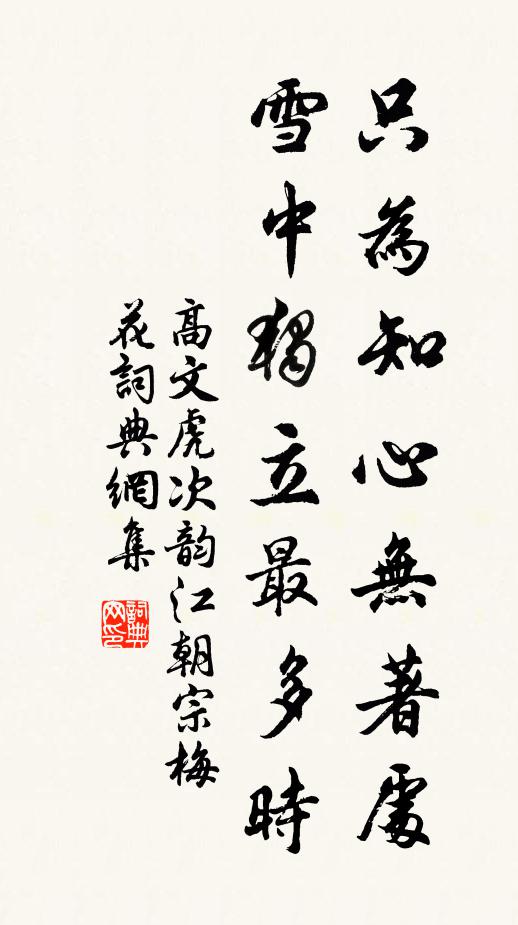 只為知心無著處
雪中獨立最多時
高文虎次韵江朝宗梅
花詞典網集
詞典
网印